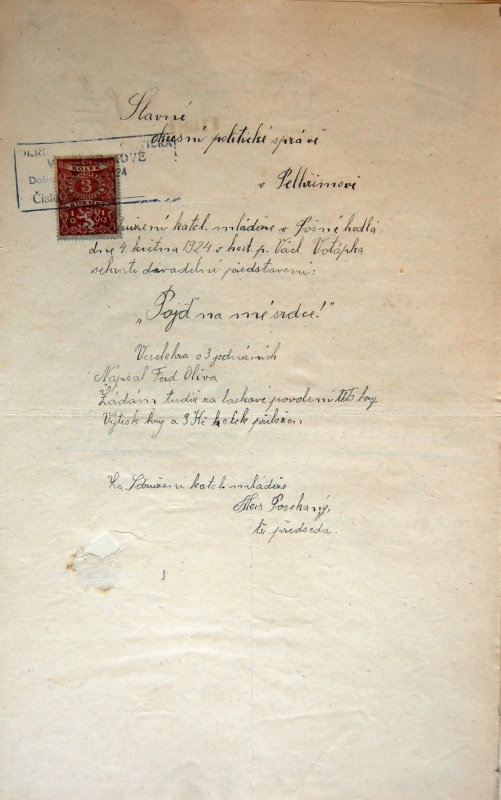 Slavné
okresní politické správě
v Pelhřimově
KOLEK
3
1919
Číslo
družení katol. mládeže v Pošné hodlá
dne 4. května 1924 v host. p. Václ. Votápka
sehrati divadelní představení:
"Pojď na mé srdce!"
Veselohra o 3 jednáních
Napsal Ferd Oliva
Žádám tudíž za laskavé povolení této hry
Výtisk hry a 3 Kč kolek přiložen
Za Sdružení katol. mládeže
Alois Posekaný,
předseda.